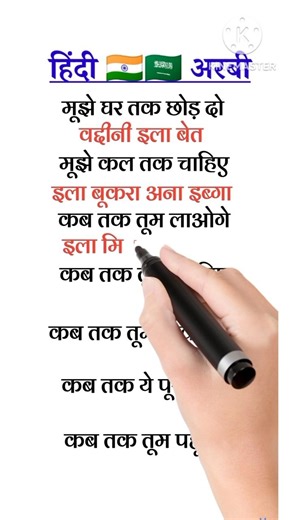 हिंदी 🇮🇳🇸🇦 अरबी
KINEMASTER
मूझे घर तक छोड़ दो
वद्दीनी इला बेत
मूझे कल तक चाहिए
इला बूकरा अना इब्गा
कब तक तूम लाओगे
इला मि
कब तक
कब तक तूम
कब तक ये
कब तक तूम